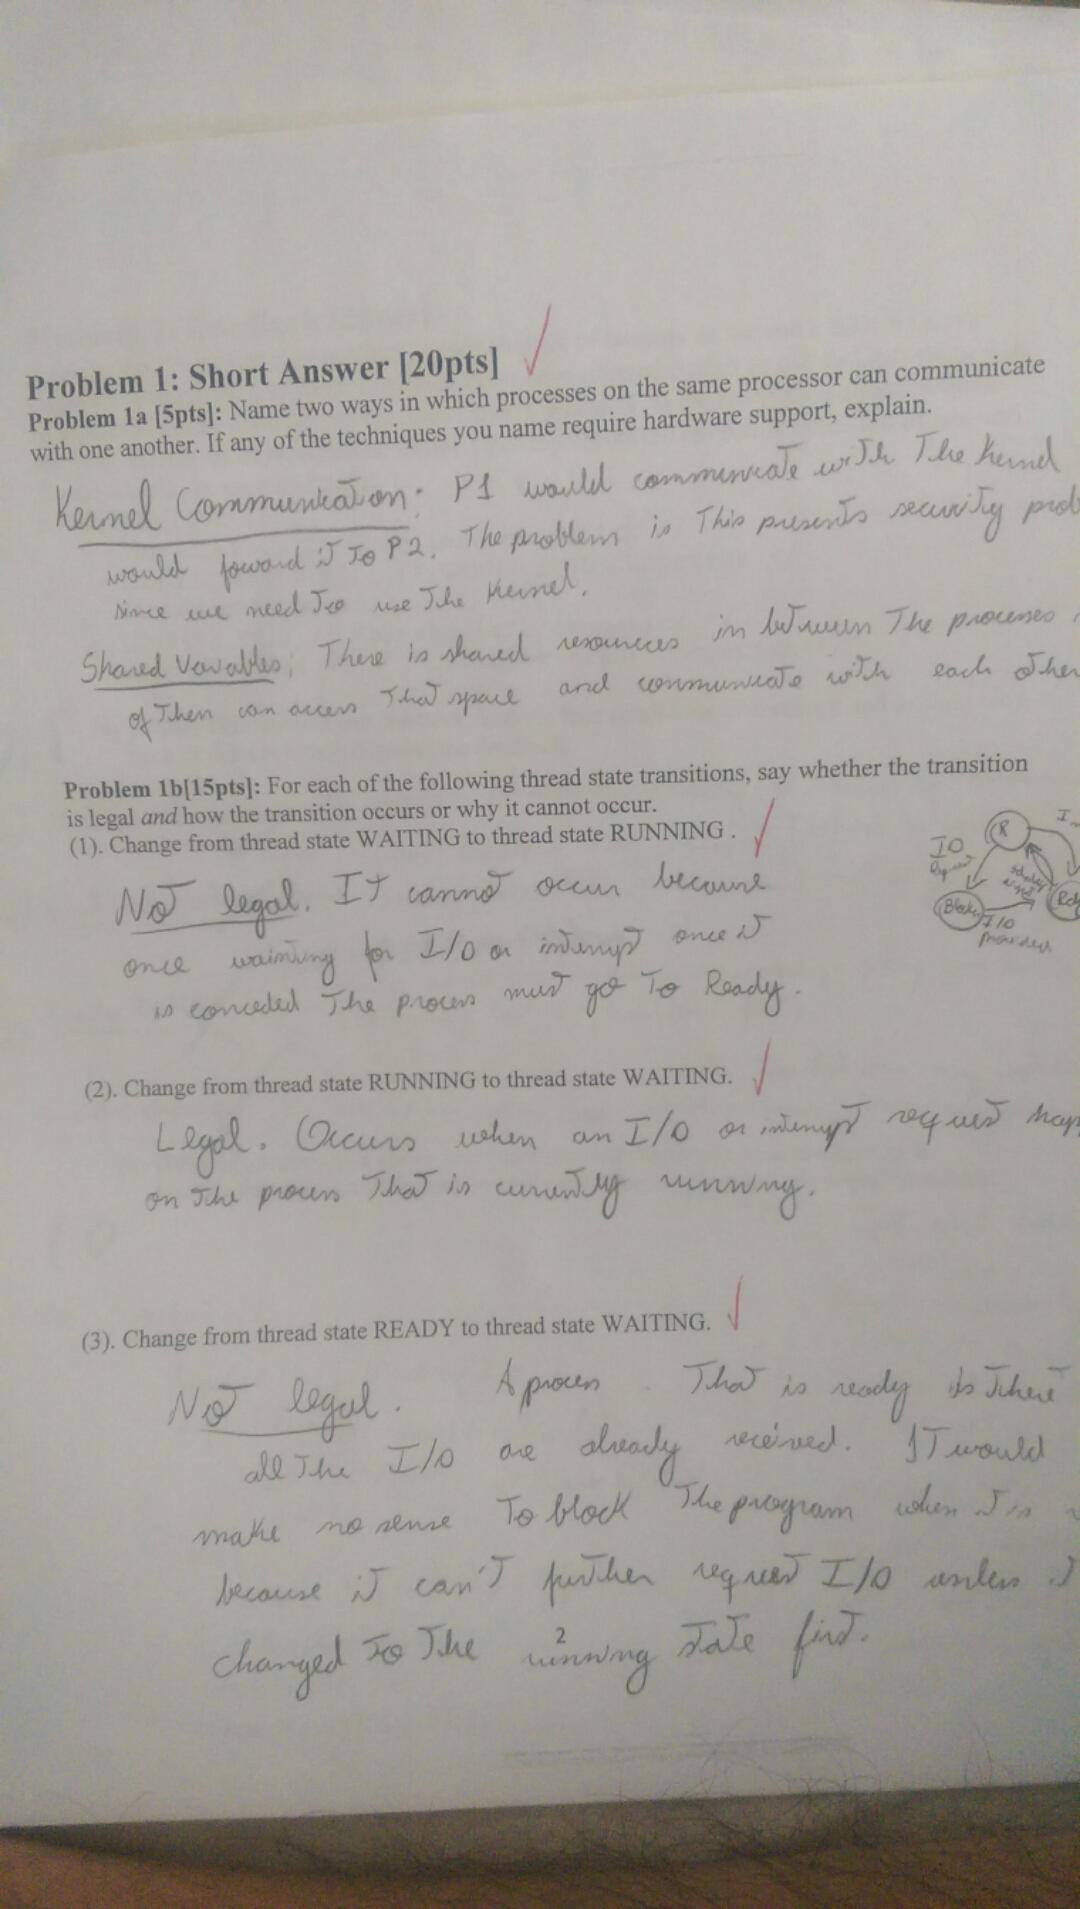 Problem 1: Short Answer [20pts]
Problem 1a [5pts]: Name two ways in which processes on the same processor can communicate
with one another. If any of the techniques you name require hardware support, explain.
Kernel Communication: P1 would communicate with The Kernel
would foward it To P2. The problem is This presents security prob
since we need To use The Kernel.
Shared Variables; There is shared resources in between The processes
of Them can access That space and communicate with each other
Problem 1b[15pts]: For each of the following thread state transitions, say whether the transition
is legal and how the transition occurs or why it cannot occur.
(1). Change from thread state WAITING to thread state RUNNING .
R
IO
Request
Blocks
I/O
Rdy
Not legal. It cannot occur because
once waiting for I/O or interrupt once it
is conceded The process must go To Ready.
(2). Change from thread state RUNNING to thread state WAITING.
Legal. Occurs when an I/O or interrupt request hap
on The process That is currently running.
(3). Change from thread state READY to thread state WAITING.
Not legal. A process That is ready is where
all The I/O are already received. IT would
make no sense To block The program when it is
because it can't further request I/O unless
changed To The running state first.
2